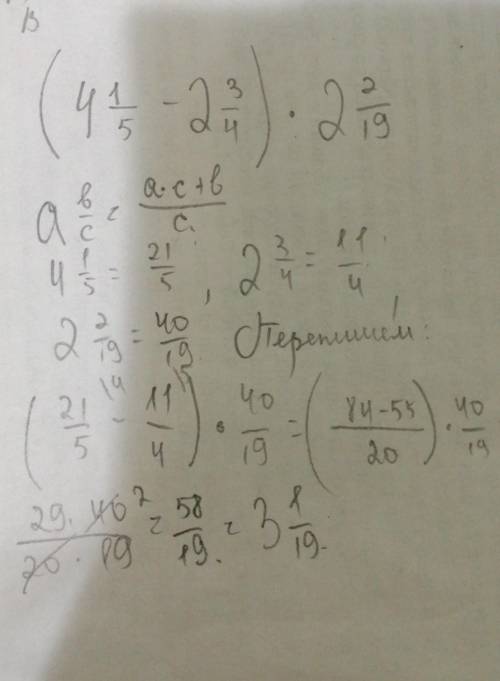 В
(4 1/5 - 2 3/4) · 2 2/19
a b/c = a·c+b/c.
4 1/5 = 21/5, 2 3/4 = 11/4
2 2/19 = 40/19. Перепишем:
(21/5 - 11/4) · 40/19 = (84-55/20) · 40/19
29·40 2/20·19 = 58/19. = 3 1/19.